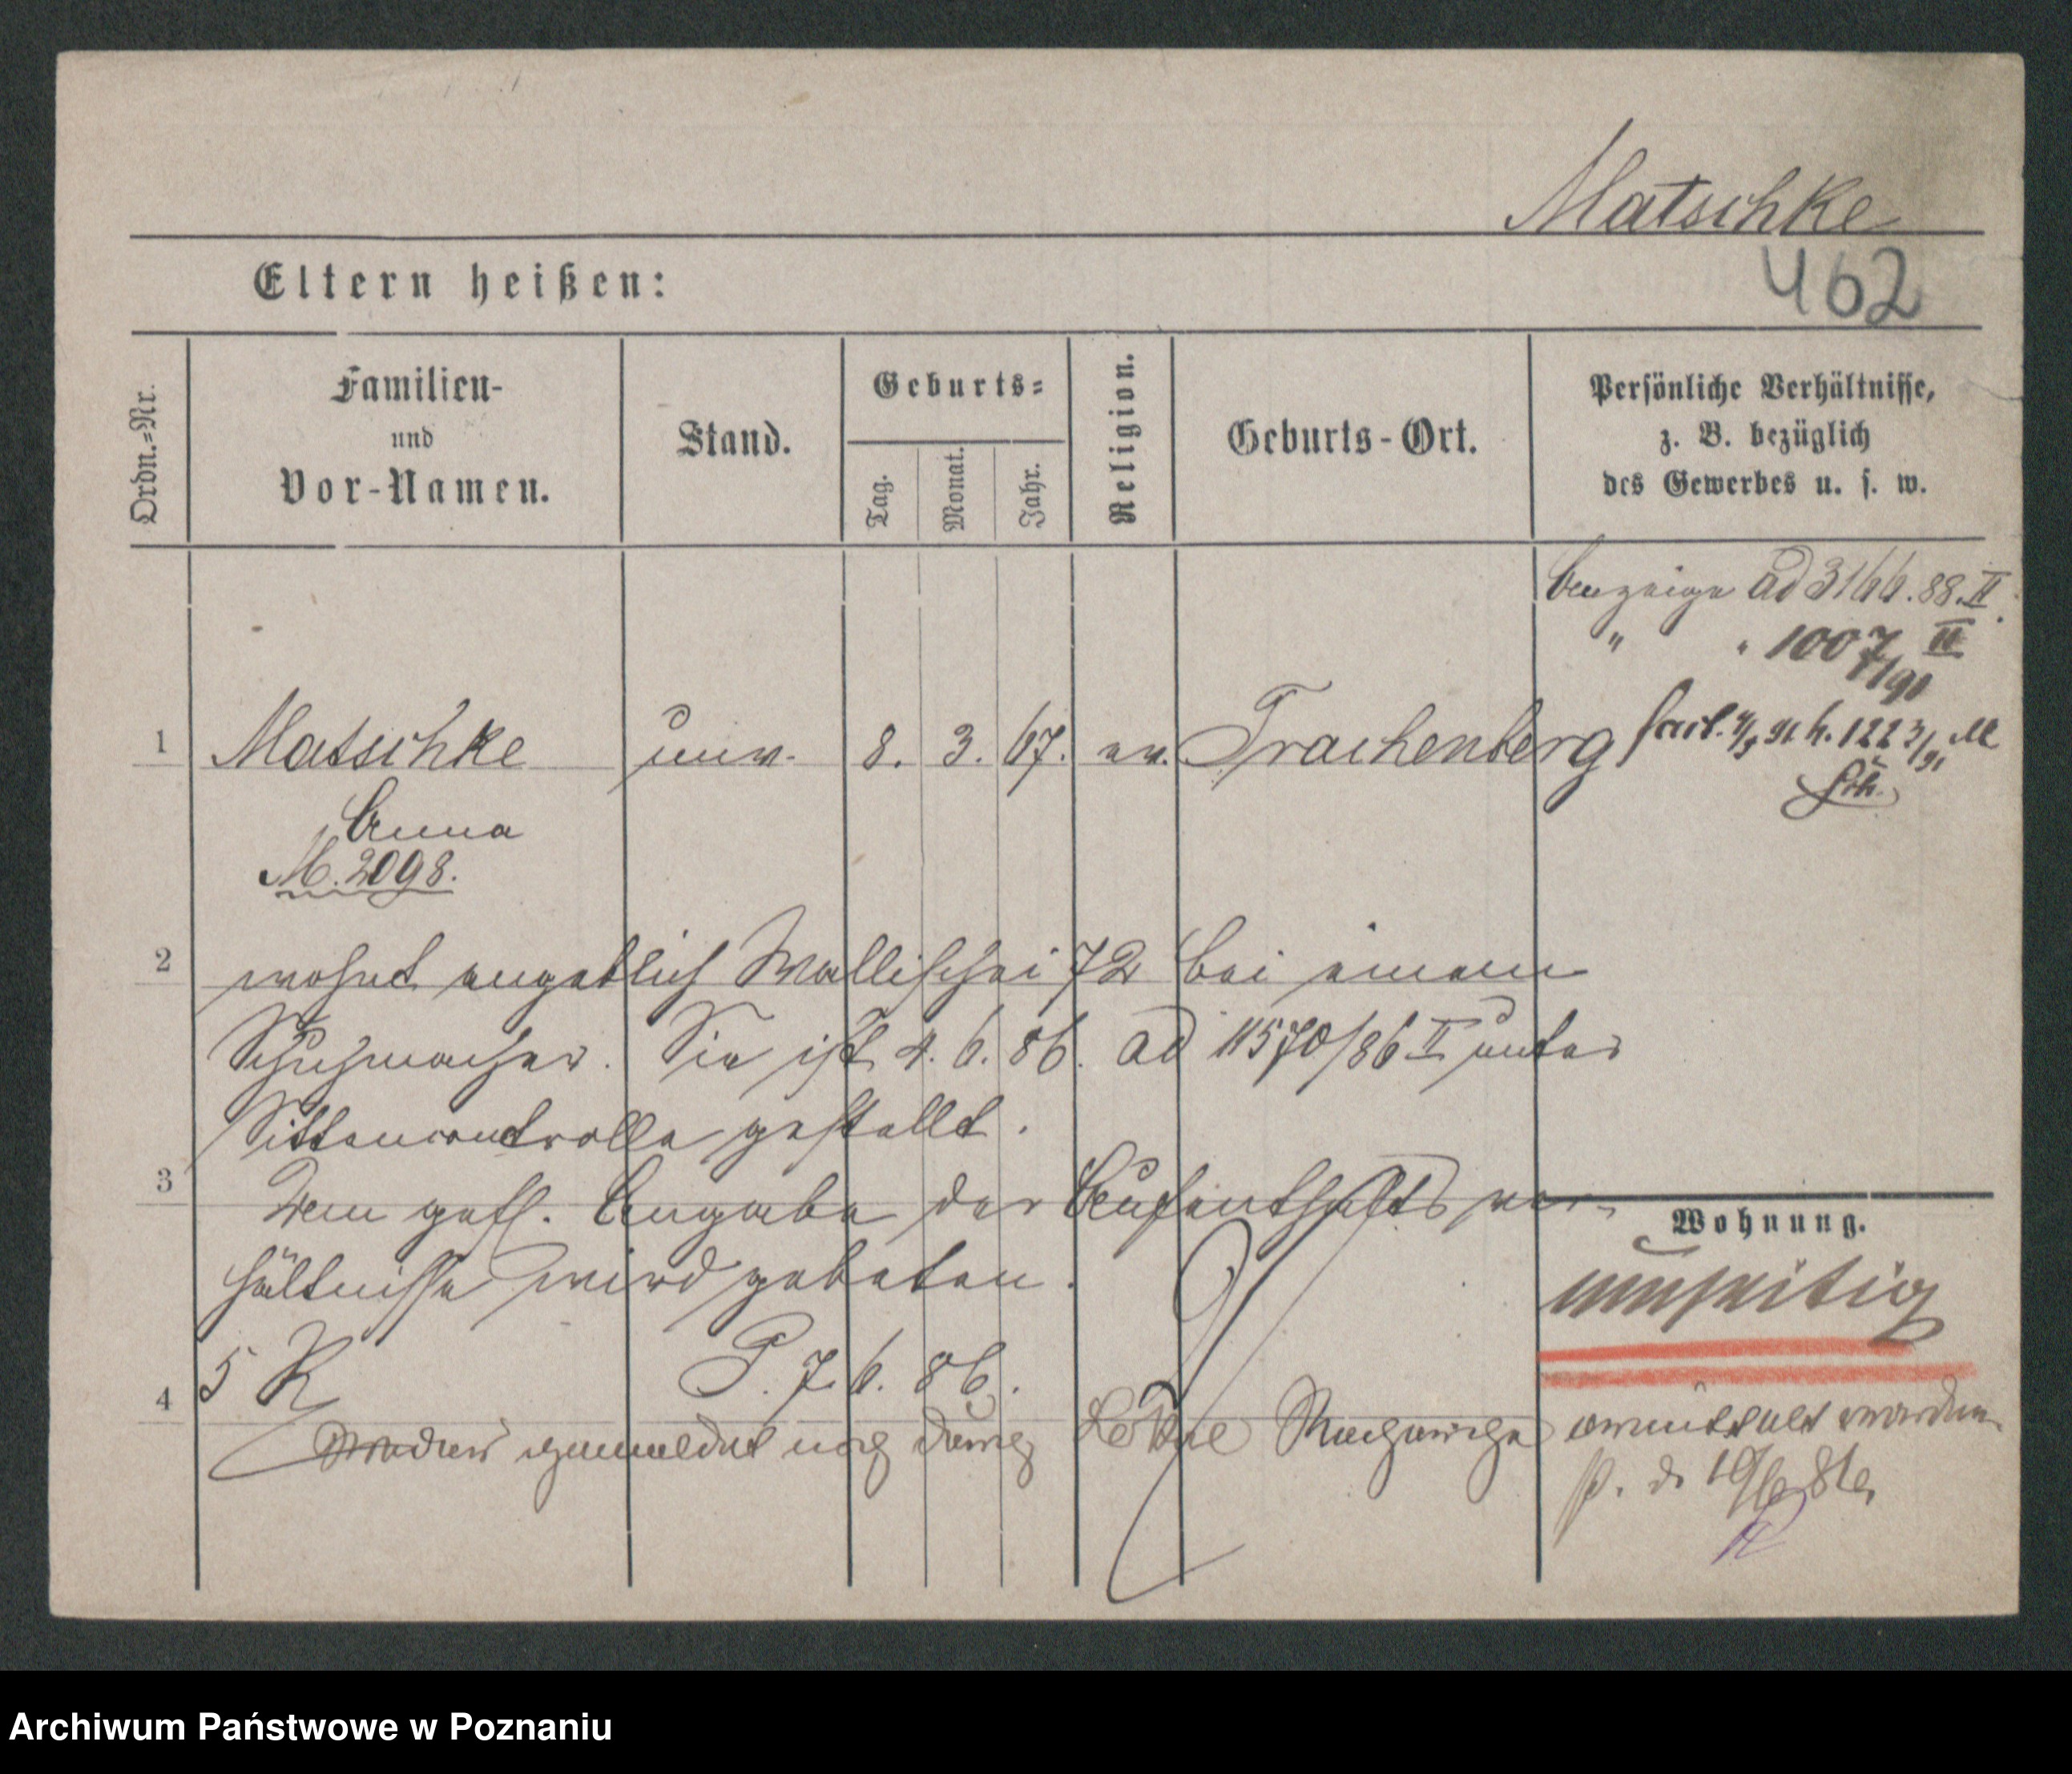 Matschke
462
Eltern heißen:
Ordn.=Nr.
Familien-
und
Vor-Namen.
Stand.
Geburts=
Tag.
Monat.
Jahr.
Religion.
Geburts-Ort.
Persönliche Verhältnisse,
z. B. bezüglich
des Gewerbes u. s. w.
Anzeige ad 3166.88.II
" " 1007 II
7/91
1 Matschke unv. 8. 3. 67. ev. Trachenberg
Anna
M. 2098.
2 wohnt angeblich Wallischei 72 bei einem
Schuhmacher. Sie ist 4. 6. 86. ad 11570/86 II unter
Sittencontrolle gestellt.
3 Um gefl. Angabe der Aufenthalts ver-
hältnisse wird gebeten.
Wohnung.
umseitig
P. 7. 6. 86.
4 Weder gemeldet noch durch ermittelt worden
P. d. 19/6 86
Archiwum Państwowe w Poznaniu